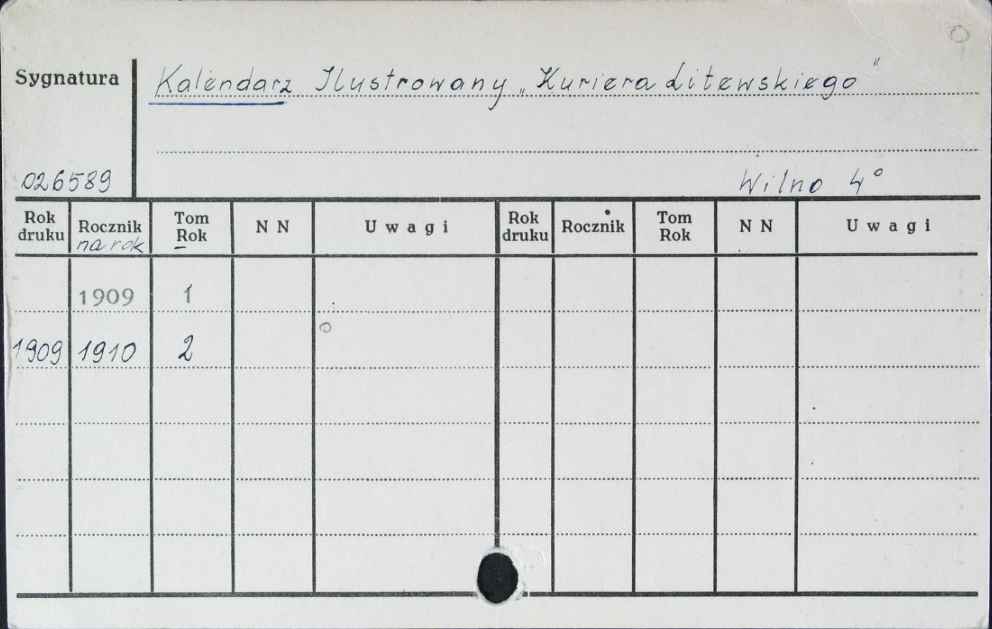 Sygnatura Kalendarz Ilustrowany „Kuriera Litewskiego"
026589 Wilno 4°
Rok druku Rocznik na rok Tom Rok N N Uwagi Rok druku Rocznik Tom Rok N N Uwagi
1909 1
1909 1910 2